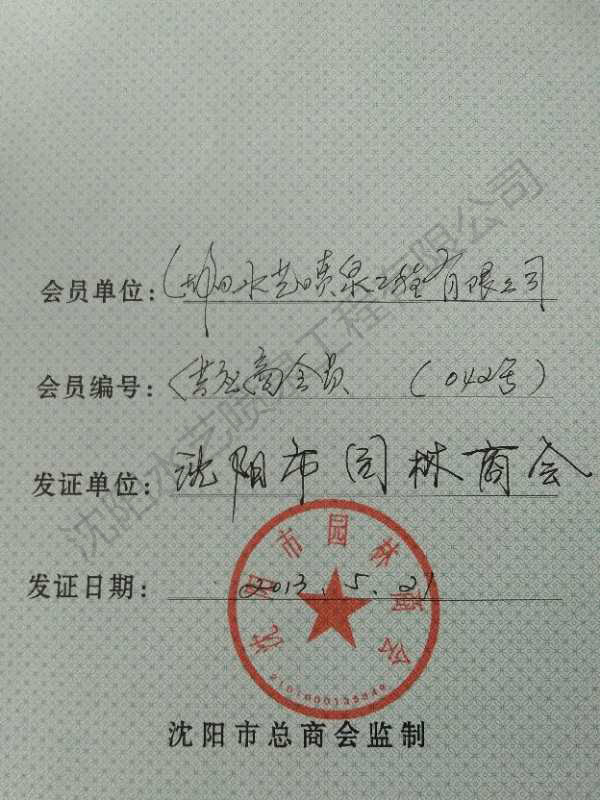 会员单位：沈阳水艺喷泉工程有限公司
会员编号：商会员（042号）
发证单位：沈阳市园林商会
发证日期：2013.5.27
沈阳市园林商会
沈阳市总商会监制
沈阳水艺喷泉工程有限公司